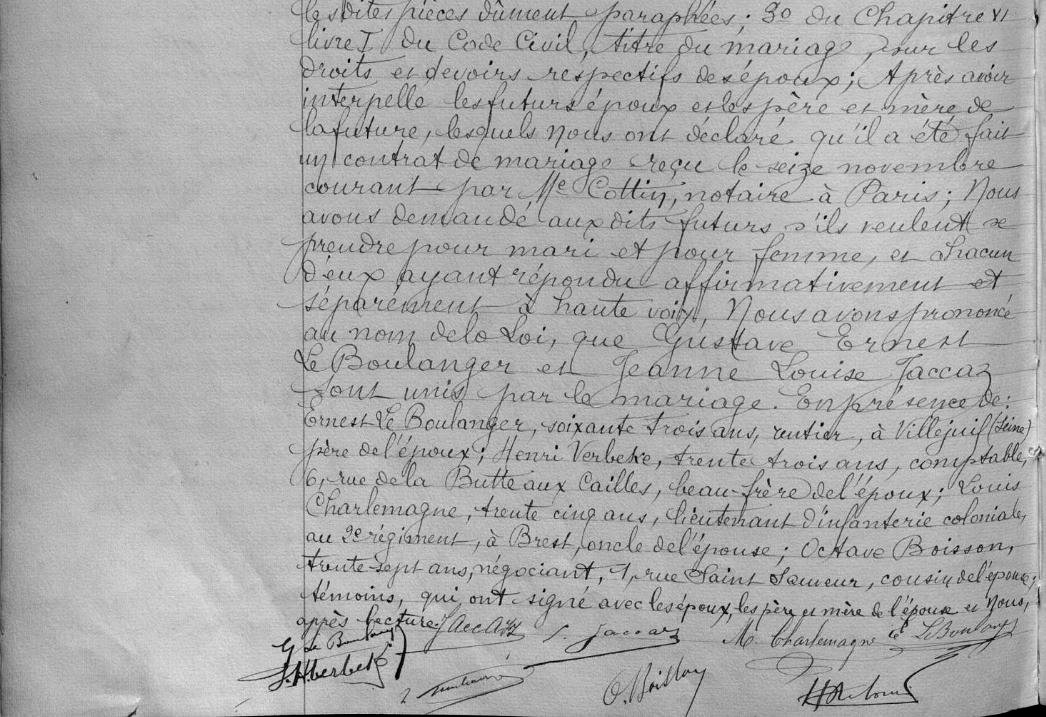 lesdites pièces dûment paraphées; 3o du Chapitre VI
livre I du Code Civil, titre du mariage, sur les
droits et devoirs respectifs des époux; Après avoir
interpellé les futurs époux et les père et mère de
la future, lesquels nous ont déclaré qu'il a été fait
un contrat de mariage reçu le seize novembre
courant par Me Cottin, notaire à Paris; Nous
avons demandé aux dits futurs s'ils veulent se
prendre pour mari et pour femme, et chacun
d'eux ayant répondu affirmativement et
séparément à haute voix, Nous avons prononcé
au nom de la Loi, que Gustave Ernest
Le Boulanger et Jeanne Louise Jaccaz
sont unis par le mariage. En présence de:
Ernest Le Boulanger, soixante trois ans, rentier, à Villejuif (Seine)
père de l'époux; Henri Verbeke, trente trois ans, comptable,
6, rue de la Butte aux Cailles, beau-frère de l'époux; Louis
Charlemagne, trente cinq ans, lieutenant d'infanterie coloniale,
au 2e régiment, à Brest, oncle de l'épouse; Octave Boisson,
trente-sept ans, négociant, 1, rue Saint Sauveur, cousin de l'épouse;
témoins, qui ont signé avec les époux, les père et mère de l'épouse et Nous,
après lecture. Jaccaz J. Jaccaz M. Charlemagne Le Boulanger
G Le Boulanger
H. Verbeke